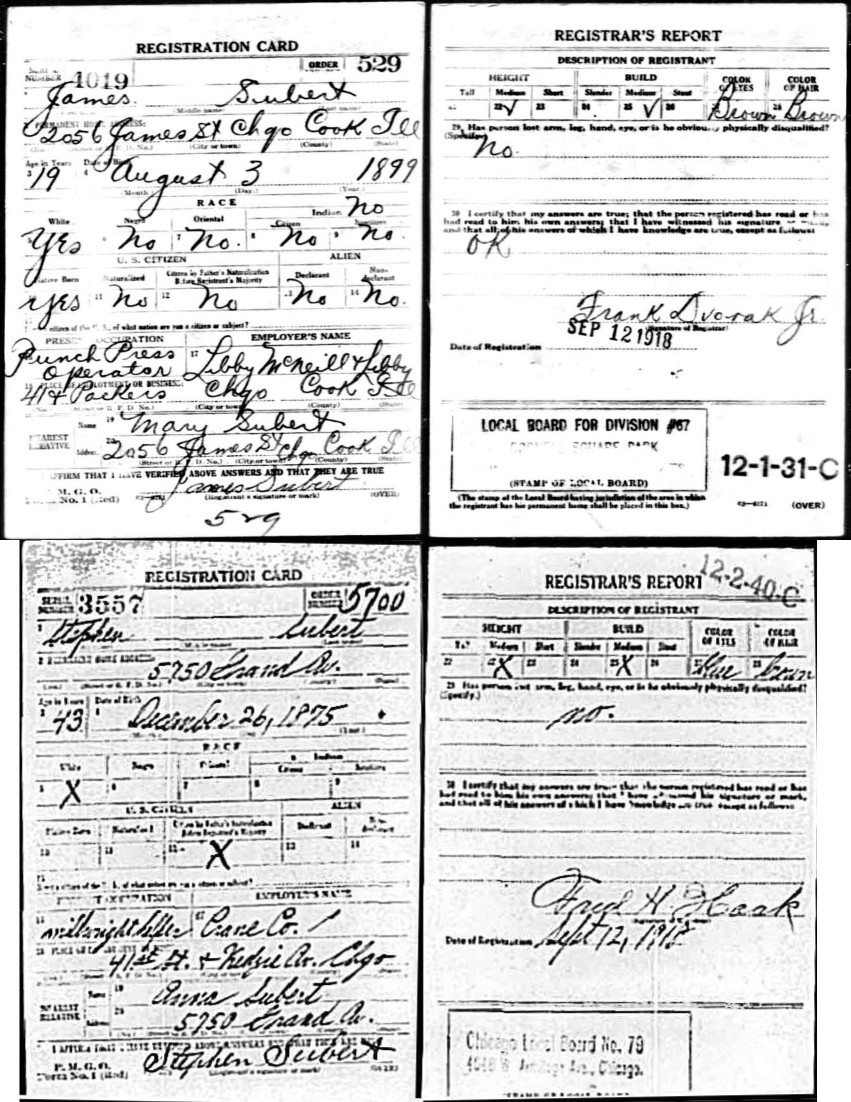 REGISTRATION CARD
SERIAL NUMBER 4019 ORDER 529
James Subert
(Middle name) (Last name)
PERMANENT HOME ADDRESS:
2056 James St Chgo Cook Ill
(City or town) (County) (State)
Age in Years Date of Birth
19 August 3 1899
(Month.) (Day.) (Year.)
RACE
White Negro Oriental Indian No
Citizen
Yes 6 No 7 No. 8 No 9 No.
U. S. CITIZEN ALIEN
Native Born Naturalized Citizen by Father's Naturalization Before Registrant's Majority Declarant Non-declarant
Yes 11 No 12 No 13 No 14 No.
citizen of the U. S., of what nation are you a citizen or subject?
PRESENT OCCUPATION EMPLOYER'S NAME
Punch Press Operator 17 Libby McNeill & Libby
PLACE OF EMPLOYMENT OR BUSINESS:
41 & Packers Chgo Cook Ill
(No.) (Street or R. F. D. No.) (City or town) (County) (State)
NEAREST RELATIVE Name 19 Mary Subert
Address 20 2056 James St Chgo Cook Ill
(Street or R. F. D. No.) (City or town) (County) (State)
I AFFIRM THAT I HAVE VERIFIED ABOVE ANSWERS AND THAT THEY ARE TRUE
P. M. G. O.
Form No. 1 (Red) James Subert
(Registrant's signature or mark) (OVER)
529
REGISTRAR'S REPORT
DESCRIPTION OF REGISTRANT
HEIGHT BUILD COLOR OF EYES COLOR OF HAIR
Tall Medium Short Slender Medium Stout
21 22 √ 23 24 25 √ 26 Brown 28 Brown
29. Has person lost arm, leg, hand, eye, or is he obviously physically disqualified?
(Specify.) No.
30 I certify that my answers are true; that the person registered has read or has
had read to him his own answers; that I have witnessed his signature or mark,
and that all of his answers of which I have knowledge are true, except as follows:
OK
Frank Dvorak Jr.
(Signature of Registrar)
Date of Registration SEP 12 1918
LOCAL BOARD FOR DIVISION #67
CORNELL SQUARE PARK
(STAMP OF LOCAL BOARD)
12-1-31-C
(The stamp of the Local Board having jurisdiction of the area in which
the registrant has his permanent home shall be placed in this box.) (OVER)
REGISTRATION CARD
SERIAL NUMBER 3557 ORDER NUMBER 5700
Stephen Subert
2 PERMANENT HOME ADDRESS:
5750 Grand Av.
Age in Years Date of Birth
43 December 26, 1875
RACE
White Negro Oriental Indian
Citizen
X 6 7 8 9
U. S. CITIZEN ALIEN
Native Born Naturalized Citizen by Father's Naturalization Before Registrant's Majority Declarant Non-declarant
10 11 12 X 13 14
PRESENT OCCUPATION EMPLOYER'S NAME
Crane Co.
41st St. & Kedzie Av. Chgo
NEAREST RELATIVE Name 19 Anna Subert
Address 20 5750 Grand Av.
I AFFIRM THAT I HAVE VERIFIED ABOVE ANSWERS AND THAT THEY ARE TRUE
P. M. G. O.
Form No. 1 (Red) Stephen Subert
(Registrant's signature or mark) (OVER)
REGISTRAR'S REPORT 12-2-40-C
DESCRIPTION OF REGISTRANT
HEIGHT BUILD COLOR OF EYES COLOR OF HAIR
Tall Medium Short Slender Medium Stout
21 22 X 23 24 25 X 26 27 Blue 28 Brown
29 Has person lost arm, leg, hand, eye, or is he obviously physically disqualified?
(Specify.) no.
30 I certify that my answers are true; that the person registered has read or has
had read to him his own answers; that I have witnessed his signature or mark,
and that all of his answers of which I have knowledge are true, except as follows:
Fred H. Haak
Date of Registration Sept 12, 1918
Chicago Local Board No. 79
4048 W. Armitage Ave., Chicago.